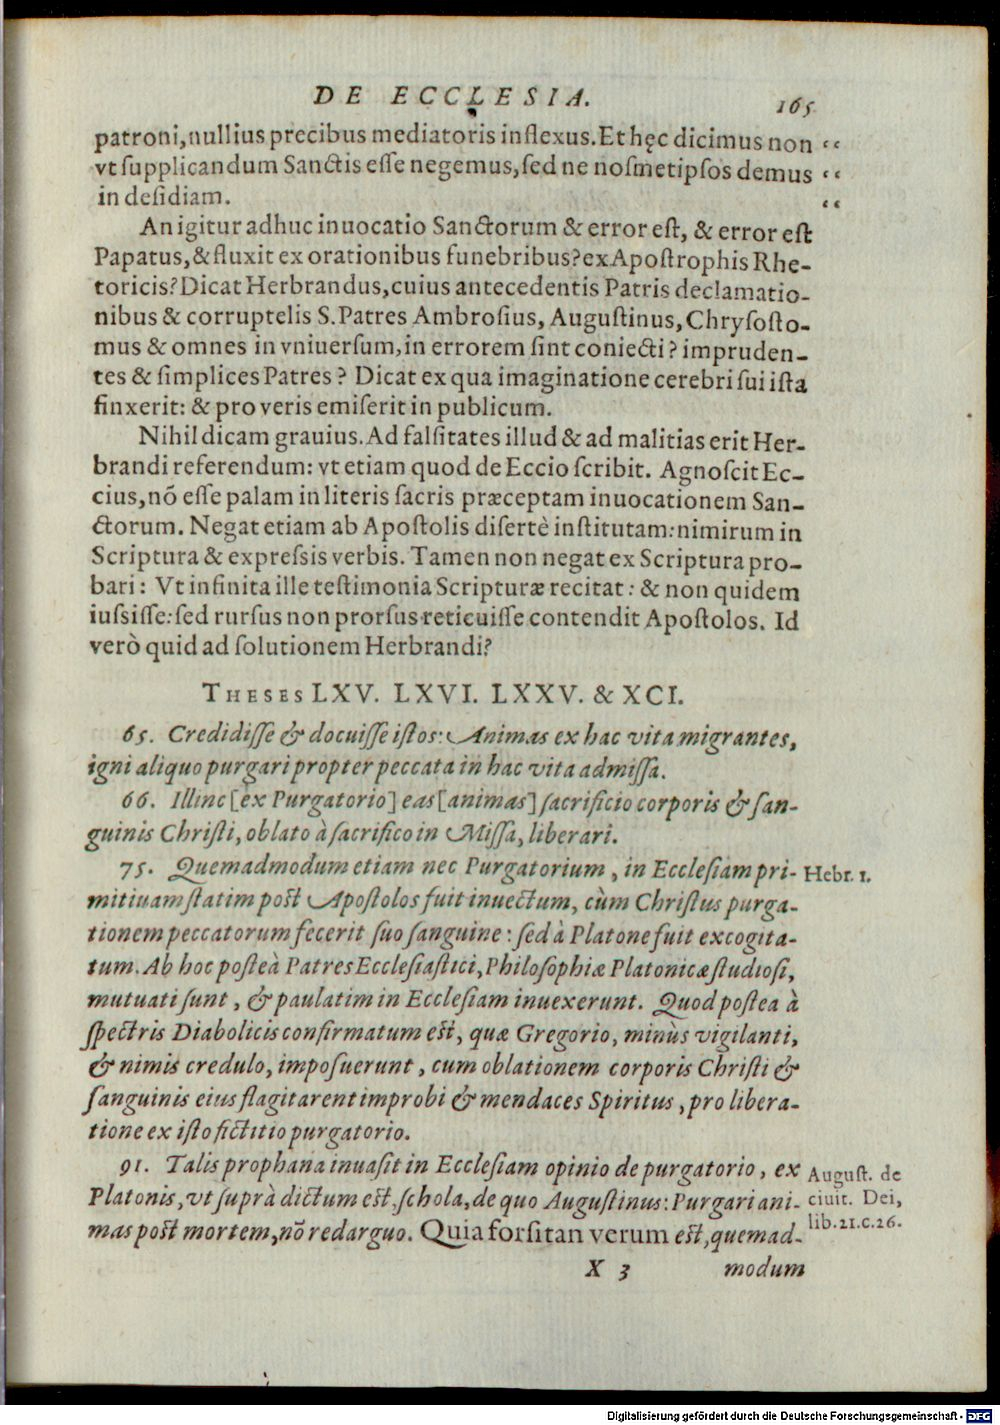 DE ECCLESIA. 165
patroni, nullius precibus mediatoris inflexus. Et hęc dicimus non “
vt ſupplicandum Sanctis eſſe negemus, ſed ne noſmetipſos demus “
in deſidiam. “
An igitur adhuc inuocatio Sanctorum & error eſt, & error eſt
Papatus, & fluxit ex orationibus funebribus? ex Apoſtrophis Rhe-
toricis? Dicat Herbrandus, cuius antecedentis Patris declamatio-
nibus & corruptelis S. Patres Ambroſius, Auguſtinus, Chryſoſto-
mus & omnes in vniuerſum, in errorem ſint coniecti? impruden-
tes & ſimplices Patres? Dicat ex qua imaginatione cerebri ſui iſta
finxerit: & pro veris emiſerit in publicum.
Nihil dicam grauius. Ad falſitates illud & ad malitias erit Her-
brandi referendum: vt etiam quod de Eccio ſcribit. Agnoſcit Ec-
cius, nō eſſe palam in literis ſacris præceptam inuocationem San-
ctorum. Negat etiam ab Apoſtolis diſertè inſtitutam: nimirum in
Scriptura & expreſsis verbis. Tamen non negat ex Scriptura pro-
bari: Vt infinita ille teſtimonia Scripturæ recitat: & non quidem
iuſsiſſe: ſed rurſus non prorſus reticuiſſe contendit Apoſtolos. Id
verò quid ad ſolutionem Herbrandi?
THESES LXV. LXVI. LXXV. & XCI.
65. Credidiſſe & docuiſſe iſtos: Animas ex hac vita migrantes,
igni aliquo purgari propter peccata in hac vita admiſſa.
66. Illinc [ex Purgatorio] eas [animas] ſacrificio corporis & ſan-
guinis Chriſti, oblato à ſacrifico in Miſſa, liberari.
75. Quemadmodum etiam nec Purgatorium, in Eccleſiam pri- Hebr. 1.
mitiuam ſtatim poſt Apoſtolos fuit inuectum, cùm Chriſtus purga-
tionem peccatorum fecerit ſuo ſanguine: ſed à Platone fuit excogita-
tum. Ab hoc poſteà Patres Eccleſiaſtici, Philoſophiæ Platonicæ ſtudioſi,
mutuati ſunt, & paulatim in Eccleſiam inuexerunt. Quod poſtea à
ſpectris Diabolicis confirmatum eſt, quæ Gregorio, minùs vigilanti,
& nimis credulo, impoſuerunt, cum oblationem corporis Chriſti &
ſanguinis eius flagitarent improbi & mendaces Spiritus, pro libera-
tione ex iſto fictitio purgatorio.
91. Talis prophana inuaſit in Eccleſiam opinio de purgatorio, ex Auguſt. de
Platonis, vt ſuprà dictum eſt, ſchola, de quo Auguſtinus: Purgari ani- ciuit. Dei,
mas poſt mortem, nō redarguo. Quia forſitan verum eſt, quemad- lib. 21. c. 26.
X 3 modum
Digitalisierung gefördert durch die Deutsche Forschungsgemeinschaft - DFG